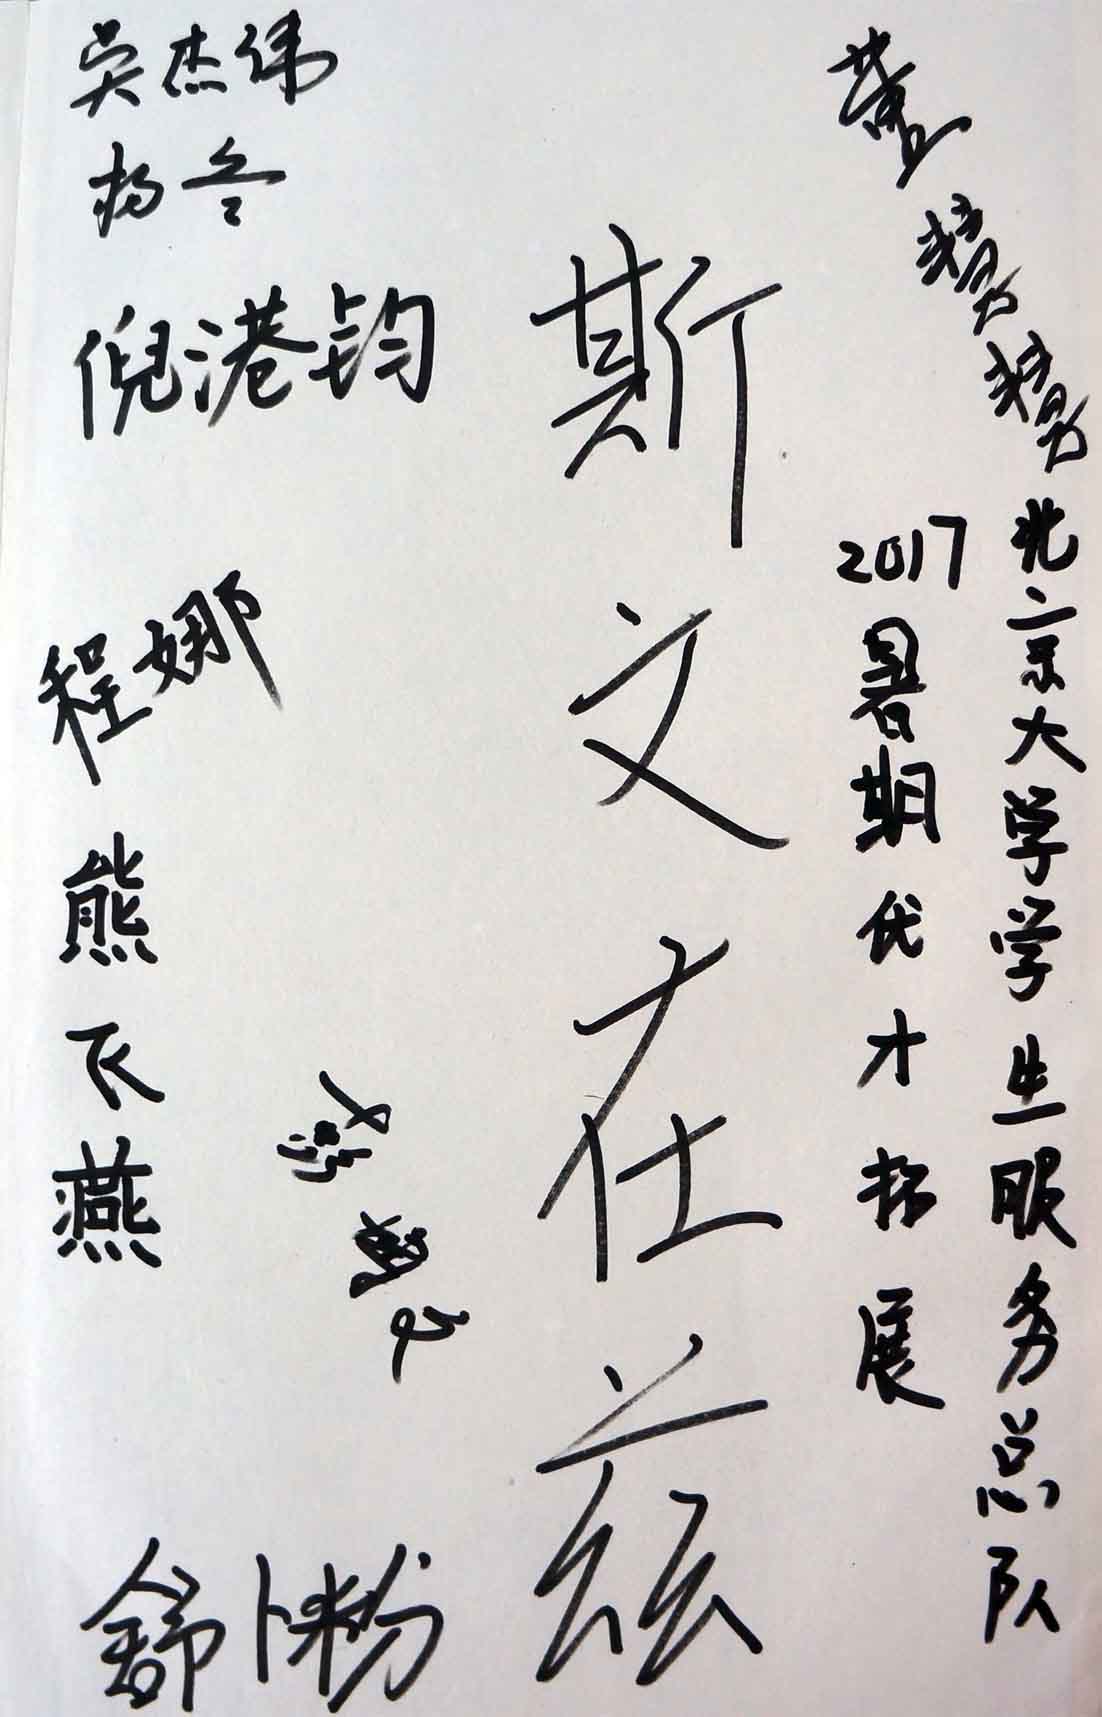 北京大学学生服务总队
2017暑期优才拓展
斯文在兹
吴杰伟
杨冬
倪港钧
程娜
熊飞燕
舒卜粉